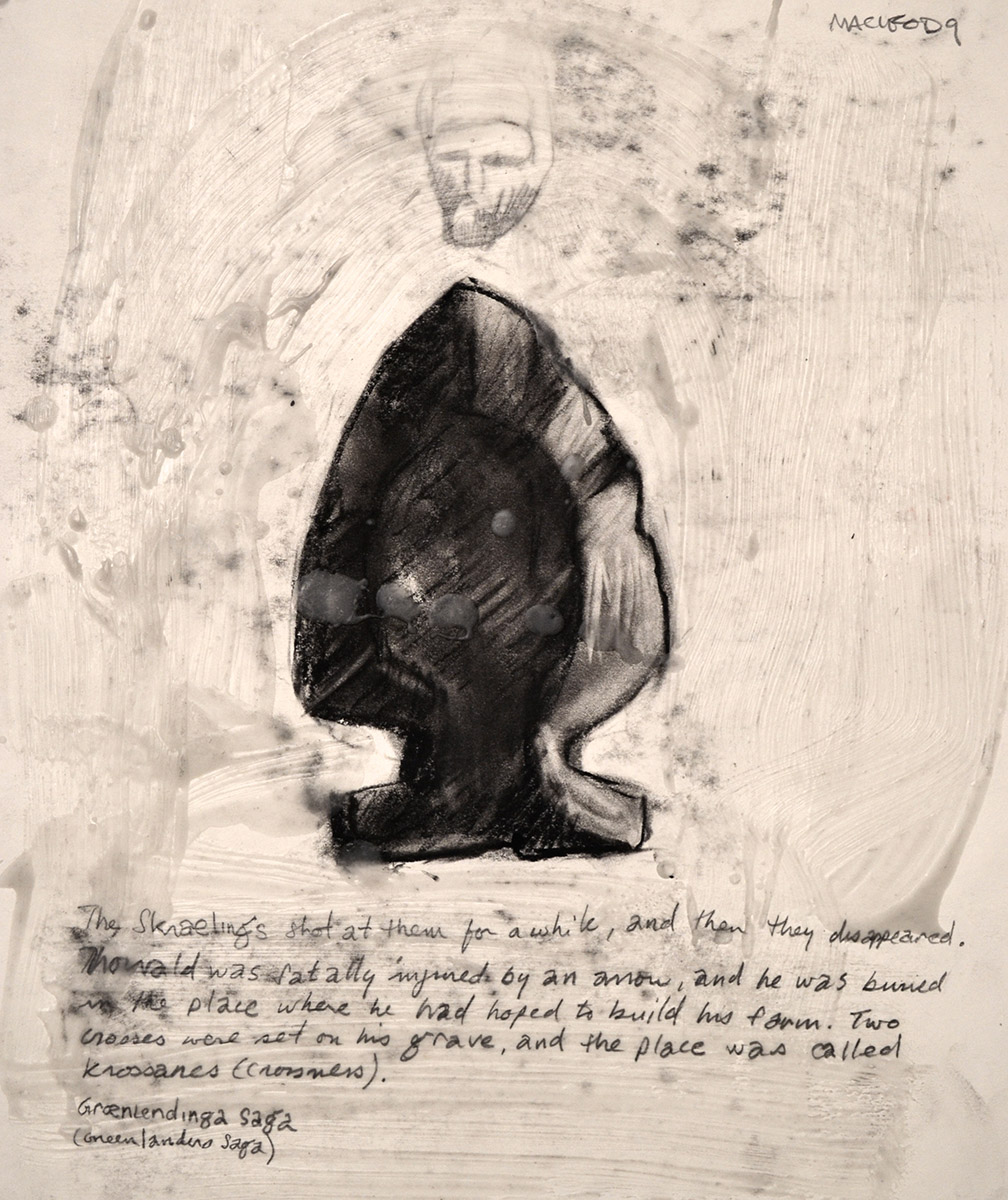 MACLEOD9
The Skraelings shot at them for a while, and then they disappeared.
Thorvald was fatally injured by an arrow, and he was buried
in the place where he had hoped to build his farm. Two
crosses were set on his grave, and the place was called
Krossanes (Crossness).
Grænlendinga Saga
(Greenlanders Saga)